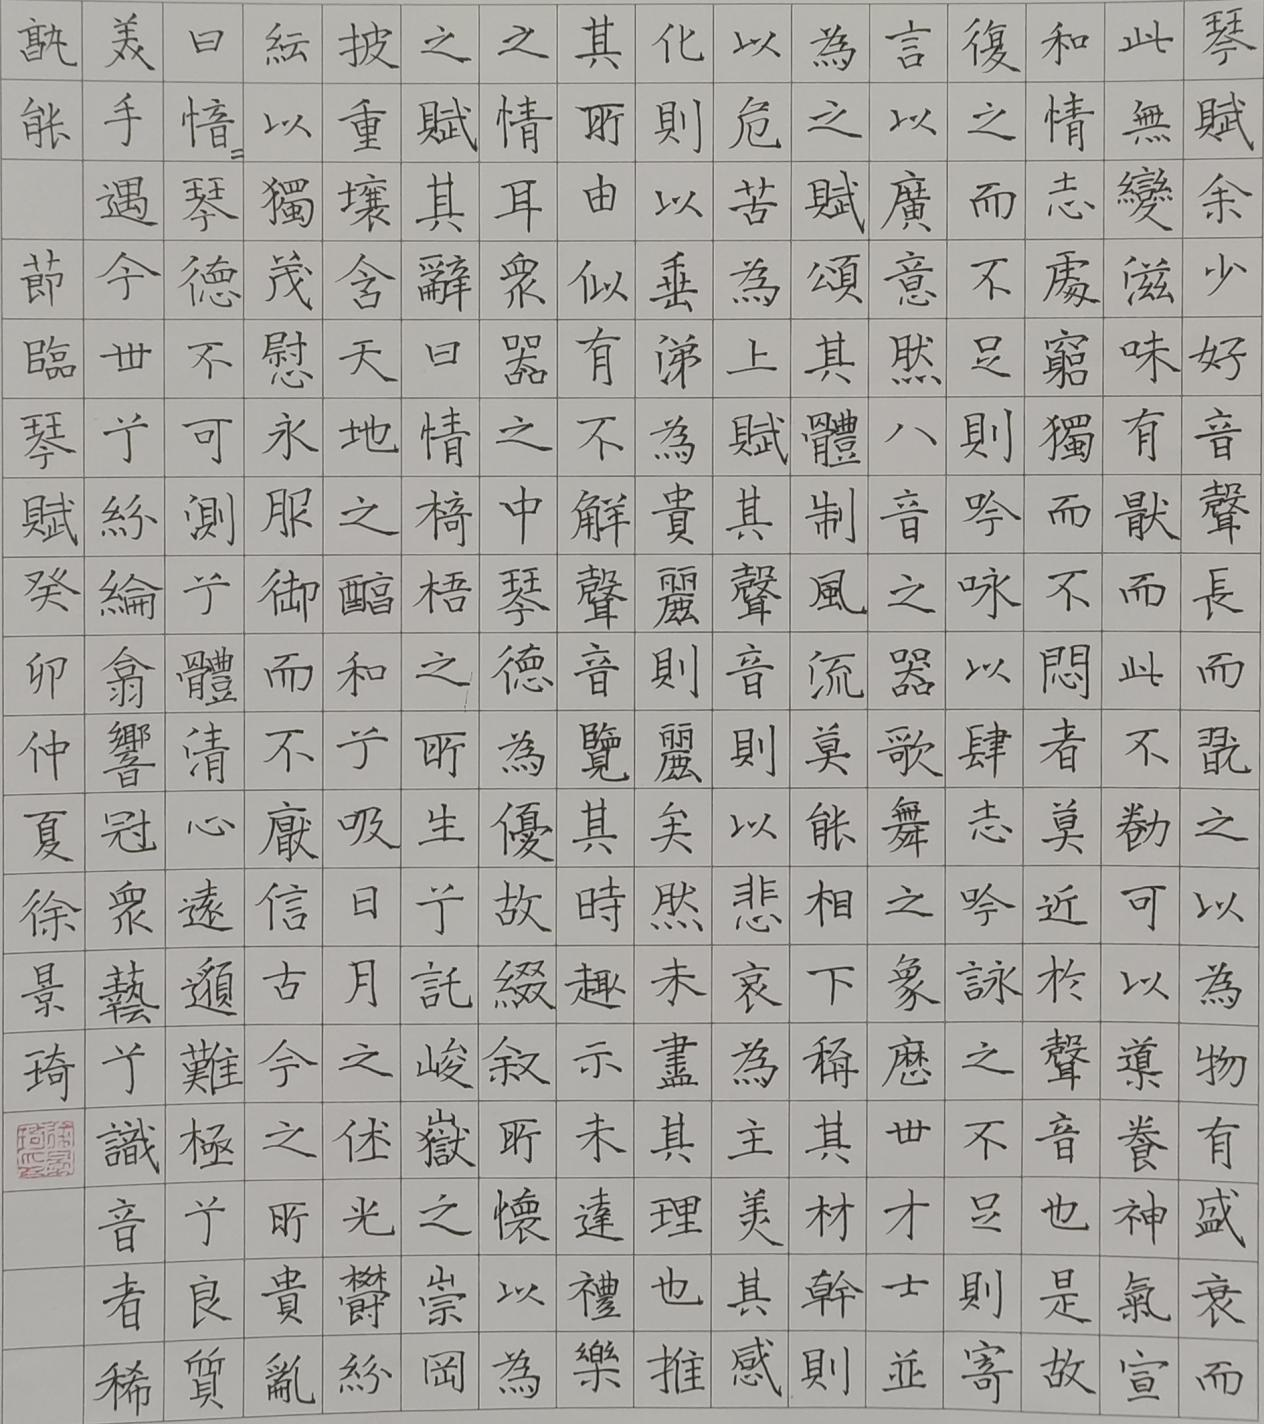 琴賦余少好音聲長而翫之以為物有盛衰而
此無變滋味有猒而此不勌可以導養神氣宣
和情志處窮獨而不悶者莫近於聲音也是故
復之而不足則吟咏以肆志吟詠之不足則寄
言以廣意然八音之器歌舞之象歷世才士並
為之賦頌其體制風流莫能相下稱其材幹則
以危苦為上賦其聲音則以悲哀為主美其感
化則以垂涕為貴麗則麗矣然未盡其理也推
其所由似有不解聲音覽其時趣示未達禮樂
之情耳眾器之中琴德為優故綴叙所懷以為
之賦其辭曰情椅梧之所生兮託峻嶽之崇岡
披重壤含天地之醕和兮吸日月之休光鬱紛
紜以獨茂慰永服御而不厭信古今之所貴亂
曰愔〻琴德不可測兮體清心遠邈難極兮良質
美手遇今世兮紛綸翕響冠眾藝兮識音者稀
孰能 節臨琴賦癸卯仲夏徐景琦